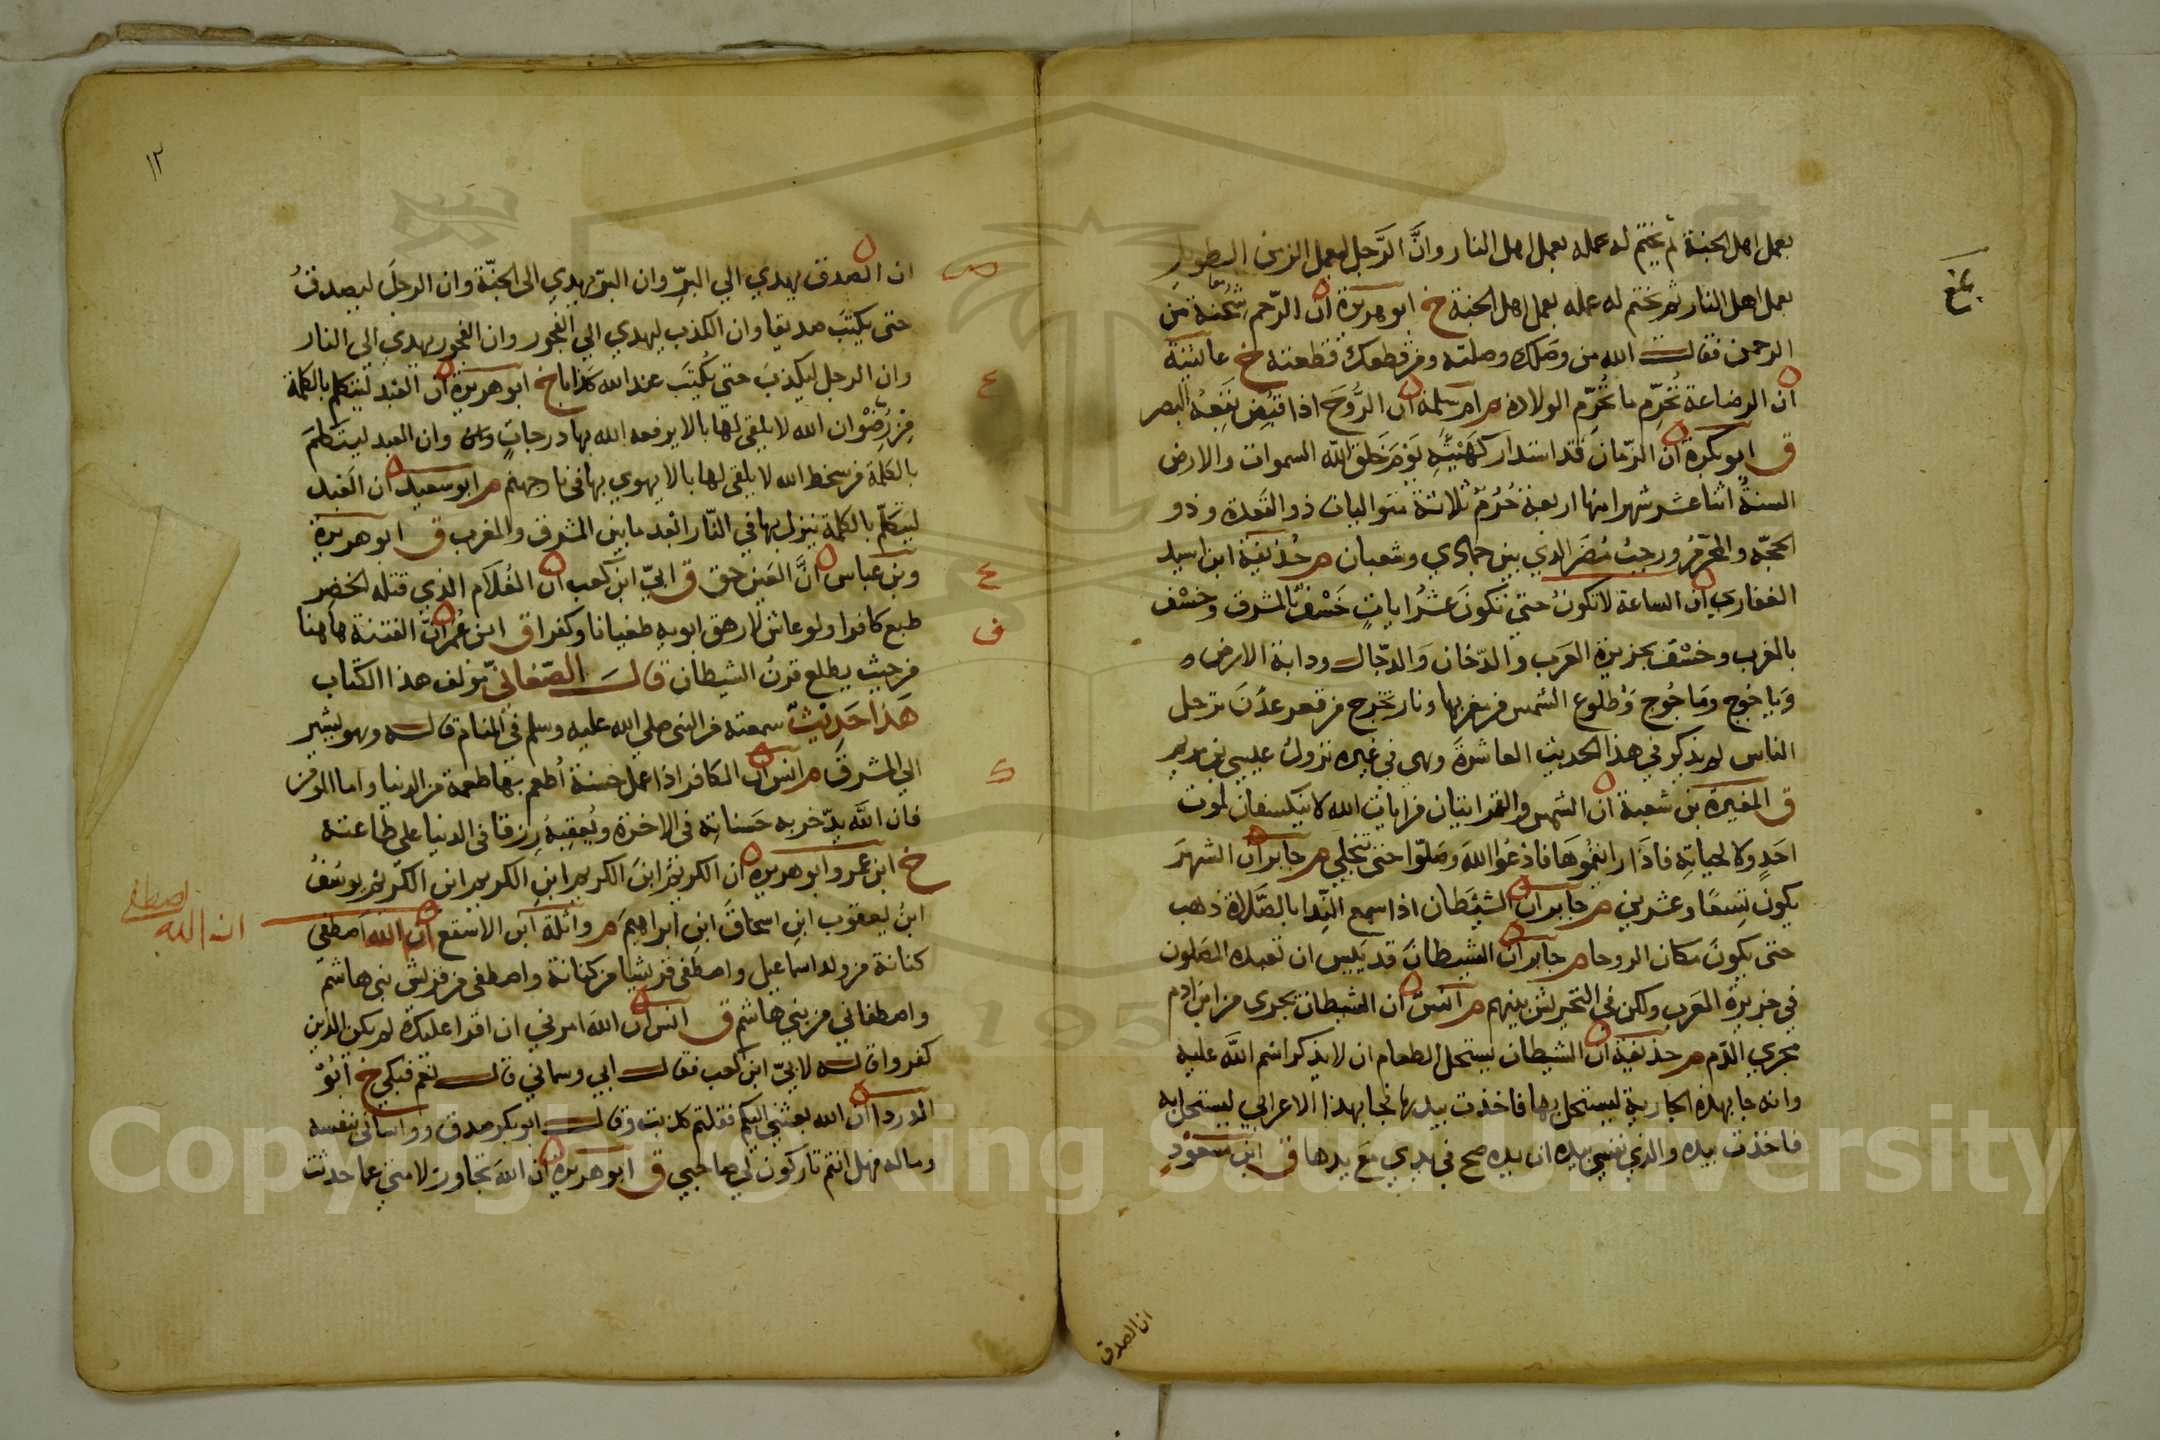 بعمل اهل الجنة ثم يختم له عمله بعمل اهل النار وانَّ الرَّجل ليعمل الزمن الطويل
بعمل اهل النار ثم يختم له عمله بعمل اهل الجنة خ ابو هريرة ان الرّحم شُجنة من
الرحمن فقال الله من وصَلك وصلته ومن قطعك قطعته خ عائشة
ان الرضاعة تُحرِّم ما تُحرِّم الولادة م ام سلمة ان الرُّوحَ اذا قُبِض تَبِعهُ البصر
ق ابو بكرة ان الزّمان قد استدار كهَيْئَتِهِ يَوْمَ خَلق الله السموات والارض
السنةُ اثنا عشر شهرا منها اربعة حُرُمٌ ثلاثة متواليات ذو القَعدة وذو
الحجّة والمحرّمُ ورجبُ مُضَر الذي بين جمادي وشعبان م حُذَيفة ابن اسيد
الغفاري ان الساعة لا تكونُ حتي تكونَ عشرُ اياتٍ خَسْفٌ بالمشرق وخسْف
بالمغرب وخسْف بجزيرة العَرب والدّخان وَالدجّال ودابة الارض و
وَياجُوج ومَاجُوج وَطلوع الشمس من مغربها ونار تخرج من قعر عدَنَ ترحل
الناس لم يذكر في هذا الحديث العاشرةَ وهي في غيره نزولُ عيسي بن مريم
ق المغيرة بن شعبة ان الشمس والقمر ايتان من ايات الله لا ينكسفان لموت
احَدٍ ولا لحياتهِ فاذا رايتموهَا فادْعُوا اللهَ وصَلّوا حتى تنجَلي م جابر ان الشهرَ
يكون تِسعًا وعشرين م جابر ان الشيْطان اذا سمع النِّدا بالصَّلاة ذهب
حتى يكونَ مكان الروحا م جابر ان الشيطانَ قد يَئِس ان تعبده المصَلون
في جزيرة العَرب ولكن في التحريش بينهم م انسٌ ان الشيطان يجرى من ابن ادم
مجرى الدّم م حذيفة ان الشيطان يستحل الطعام ان لا يذكر اسْم اللَّه عليه
وانه جا بهذه الجارية ليستحل بها فاخذت بيدها فجا بهذا الاعرابي ليستحل به
فاخذت بيده والذي نفسي بيده ان يده مع في يدي مَع يدها ق ابن مسعُودٍ
ان الصدق
١٢
ان الصدق يهدي الي البرِّ وان البرّ يهدِي الى الجنّة وان الرجلَ ليصدقُ
حتى يكتَبَ صديقا وان الكذب ليهدي الي الفجور وان الفجور يهدي الي النار
وان الرجل ليكذبَ حتي يُكتَبَ عند الله كذابا خ ابو هريرة ان العبد ليتكلم بالكلمة
من رِضْوان الله لا يلقي لها بالا يرفعه الله بها درجاتٍ وان العبد ليتكلّمَ
بالكلمَة من سخط الله لا يلقى لها بالا يهوي بها في نار جهنم م ابو سعيد ان العَبد
ليتكلّم بالكلمة ينزل بها في النّار ابْعد ما بين المشرق والمغرب ق ابو هريرة
وبن عباس انَّ العَين حق ق ابيّ ابن كعب ان الغُلَام الذي قتله الخضر
طبع كافرا ولو عاش لارهق ابويه طغيانا وكفرا ق ابن عُمر انّ الفتنة هاهنا
من حيث يطلع قرنُ الشيطان قال الصّغاني مؤلف هذا الكتاب
هَذا حَدِيْثٌ سمعته من النبي صلي الله عليه وسلم في المنام قال وهو يشير
الي المشرق م انس ان الكافر اذا عمل حسنة اُطعم بهَا طعمة من الدنيا واما المؤمن
فان اللَّه يدّخر به حَسناتهِ في الاخرة ويُعقبهُ رِزقا في الدنيا على طاعته
خ ابن عمر وابو هريرة ان الكريمَ ابنَ الكريم ابنِ الكريم ابن الكريم يوسُفُ
ابنُ يعقوب ابنِ اسحاقَ ابنِ ابراهيمَ م واثلة ابن الاسقع ان الله اصطفى
كنانة من ولد اسماعيل واصطفى قريشا من كنانة واصطفى من قريش بني هاشم
واصطفاني من بني هاشم ق انس ان اللهَ امرني ان اقرا عليك لم يكن الذين
كفروا قاله لابيّ ابن كعب فقال ابي وسماني قال نعم فبكي خ ابُوْ
الدردا ان الله بعثني اليكم فقلتم كذبت وقال ابو بكر صدق وواساني بنفسه
وماله فهل انتم تاركون لي صاحبي ق ابو هريرة ان الله تجاوز لامتي عما حدثت
ان الله اصطفى